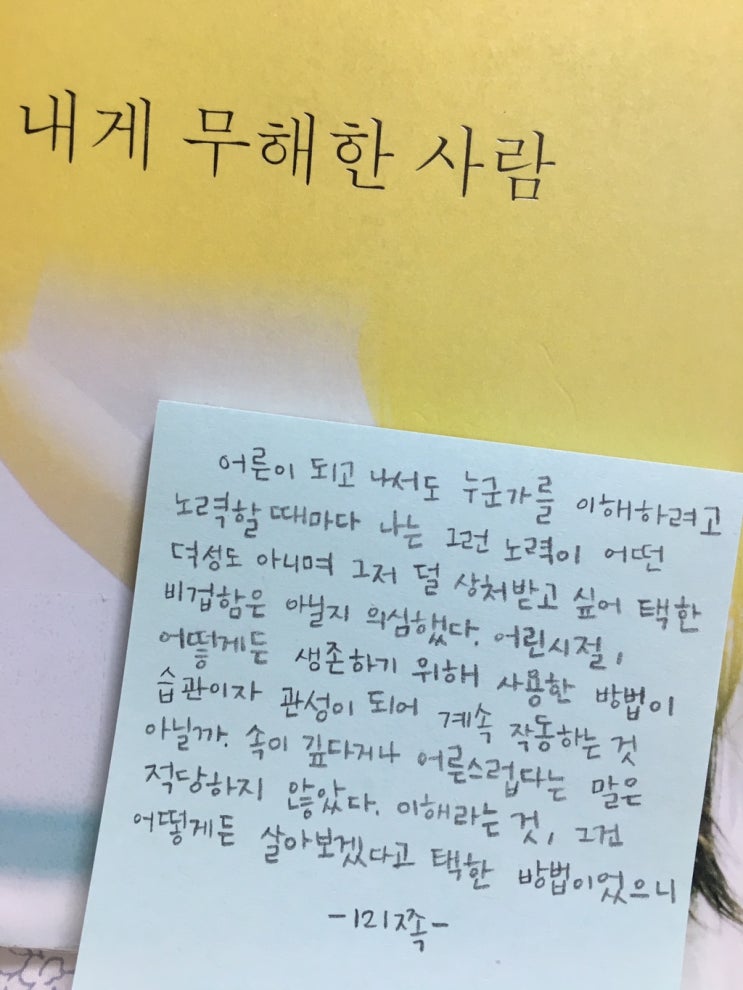 내게 무해한 사람
어른이 되고 나서도 누군가를 이해하려고
노력할 때마다 나는 그런 노력이 어떤
덕성도 아니며 그저 덜 상처받고 싶어 택한
비겁함은 아닐지 의심했다. 어린시절,
어떻게든 생존하기 위해 사용한 방법이
습관이자 관성이 되어 계속 작동하는 것
아닐까. 속이 깊다거나 어른스럽다는 말은
적당하지 않았다. 이해라는 것, 그건
어떻게든 살아보겠다고 택한 방법이었으니
-121쪽-